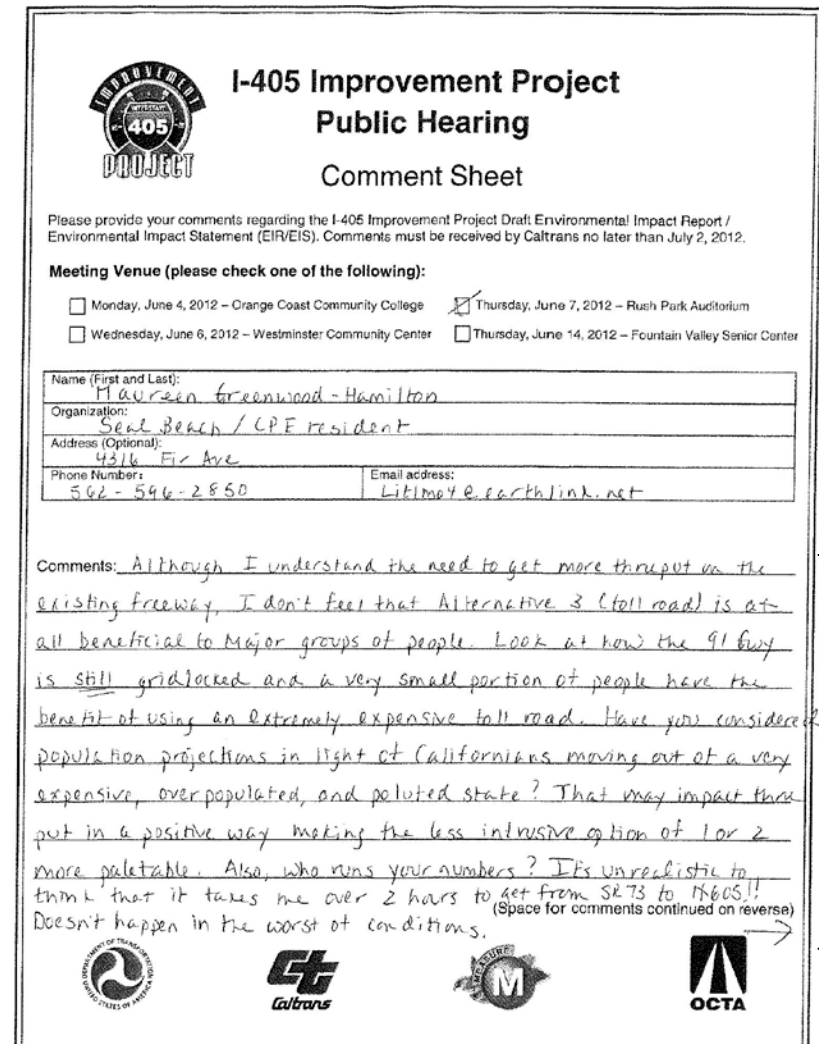 IMPROVEMENT
INTERSTATE
405
PROJECT
I-405 Improvement Project
Public Hearing
Comment Sheet
Please provide your comments regarding the I-405 Improvement Project Draft Environmental Impact Report /
Environmental Impact Statement (EIR/EIS). Comments must be received by Caltrans no later than July 2, 2012.
Meeting Venue (please check one of the following):
Monday, June 4, 2012 – Orange Coast Community College
Thursday, June 7, 2012 – Rush Park Auditorium
Wednesday, June 6, 2012 – Westminster Community Center
Thursday, June 14, 2012 – Fountain Valley Senior Center
Name (First and Last):
Maureen Greenwood-Hamilton
Organization:
Seal Beach / CPE resident
Address (Optional):
4316 Fir Ave
Phone Number:
562-596-2850
Email address:
Litlmo4@earthlink.net
Comments: Although I understand the need to get more thruput on the
existing freeway, I don't feel that Alternative 3 (toll road) is at
all beneficial to Major groups of people. Look at how the 91 fwy
is still gridlocked and a very small portion of people have the
benefit of using an extremely expensive toll road. Have you considered
population projections in light of Californians moving out of a very
expensive, overpopulated, and poluted state? That may impact thru
put in a positive way making the less intrusive option of 1 or 2
more paletable. Also, who runs your numbers? It's unrealistic to
think that it takes me over 2 hours to get from SR73 to I605!!
(Space for comments continued on reverse)
Doesn't happen in the worst of conditions.
DEPARTMENT OF TRANSPORTATION
UNITED STATES OF AMERICA
Ct
Caltrans
MEASURE
M
OCTA